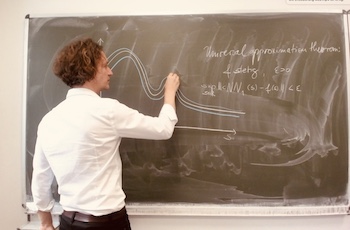 Universal approximation theorem:
f stetig, ε>0
sup ‖NN_f(x) - f(x)‖ < ε